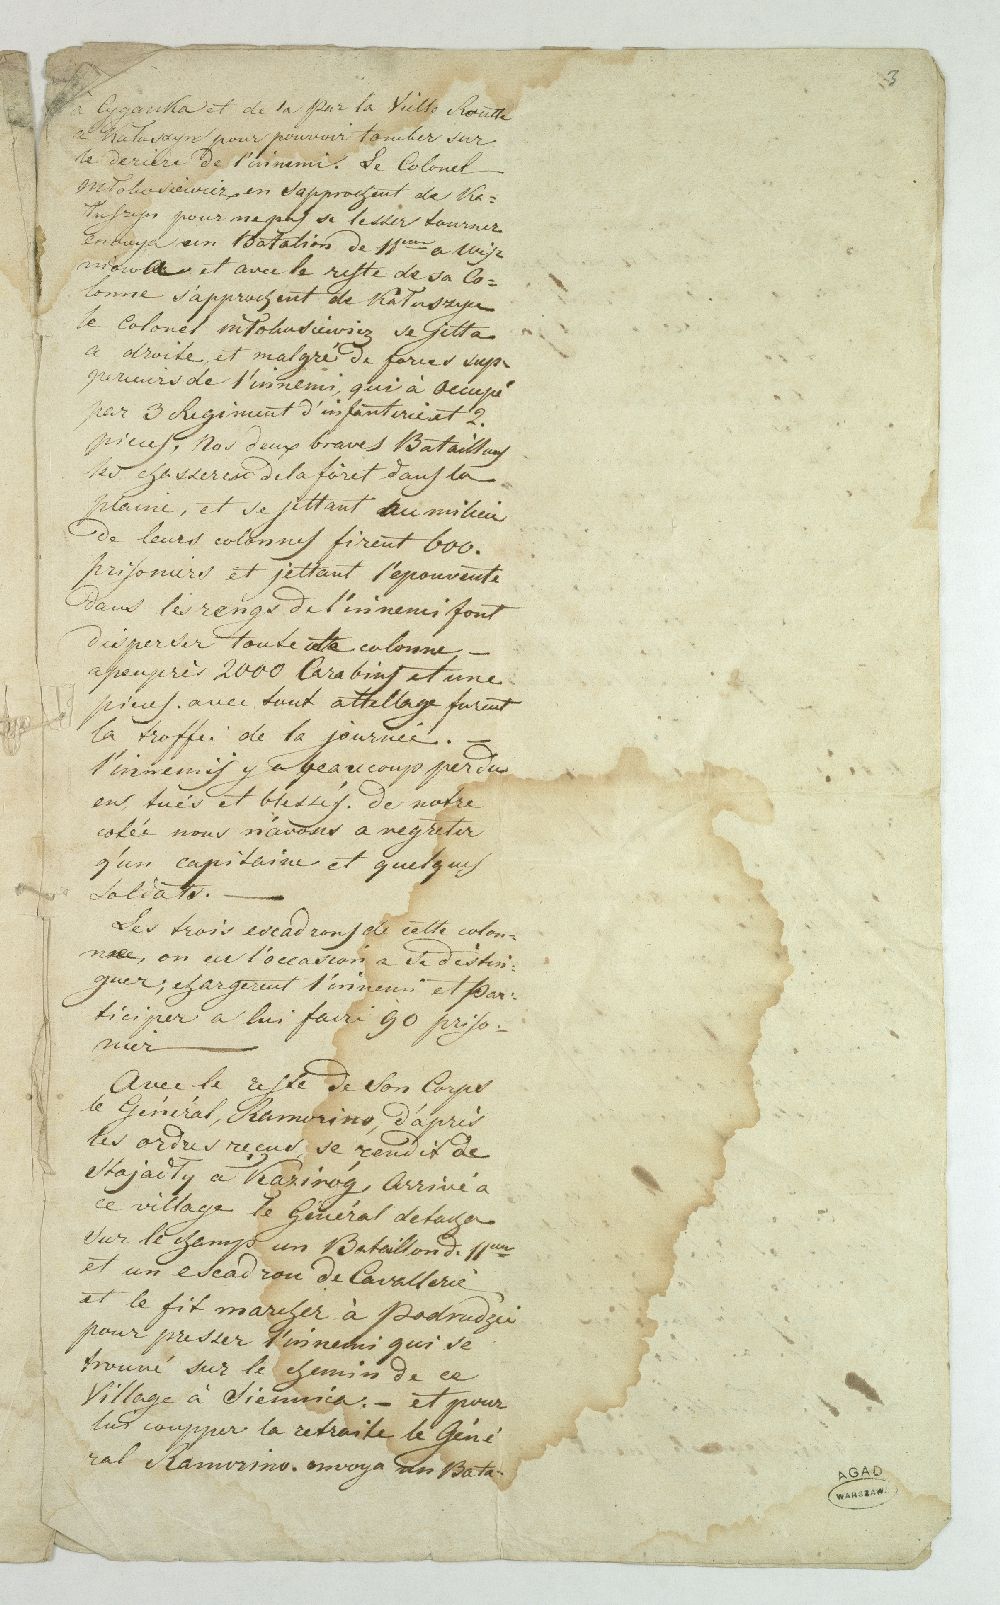 3
à Cyganka et de la par la Vielle Routte
a Kałuszyn pour pouvoir tomber sur
le deriere de l'innemi. Le Colonel
Młokosiewicz en s'approchent de Ka=
łuszyn pour ne pas se lesser tourner
envoya un Batalion de 11eme a Wisz
niew et avec le reste de sa Co=
lonne s'approchent de Kałuszyn
le Colonel Młokosiewicz se jetta
a droite, et malgré de forces sup-
perieurs de l'innemi, qui à occupé
par 3 Regiment d'infanterie et 2.
pieces, Nos deux braves Bataillons
les chasserent de la forêt dans la
plaine, et se jettant au milieu
de leurs colonnes firent 600.
prisoniers et jettant l'epouvente
dans les rengs de l'innemi font
disperser toute colonne –
apeuprès 2000 Carabins et une
pieces avec tout attellage furent
la troffei de la journée. –
l'innemis y a beaucoup perdu
en tués et blessés. de notre
cotée nous n'avons a regreter
q'un capitaine et quelques
soldats. —
Les trois escadrons de cette colon=
ne, on eu l'occasion a se distin=
guer; chargerent l'innemi et par=
ticiper a lui faire 90 priso=
nier —
Avec le reste de son Corps
le Général, Ramorino, d'après
les ordres reçus, se rendit de
Stojadły a Kaziróg, Arrivé a
ce village le Général detacha
sur le champ un Bataillon d. 11eme
et un escadron de Cavallerie
et le fit marcher à Podrudzie
pour presser l'innemi qui se
trouvé sur le chemin de ce
Village à Siennica. – et pour
lui coupper la retraite le Géné
ral Ramorino. envoya un Bata-
AGAD
WARSZAWA